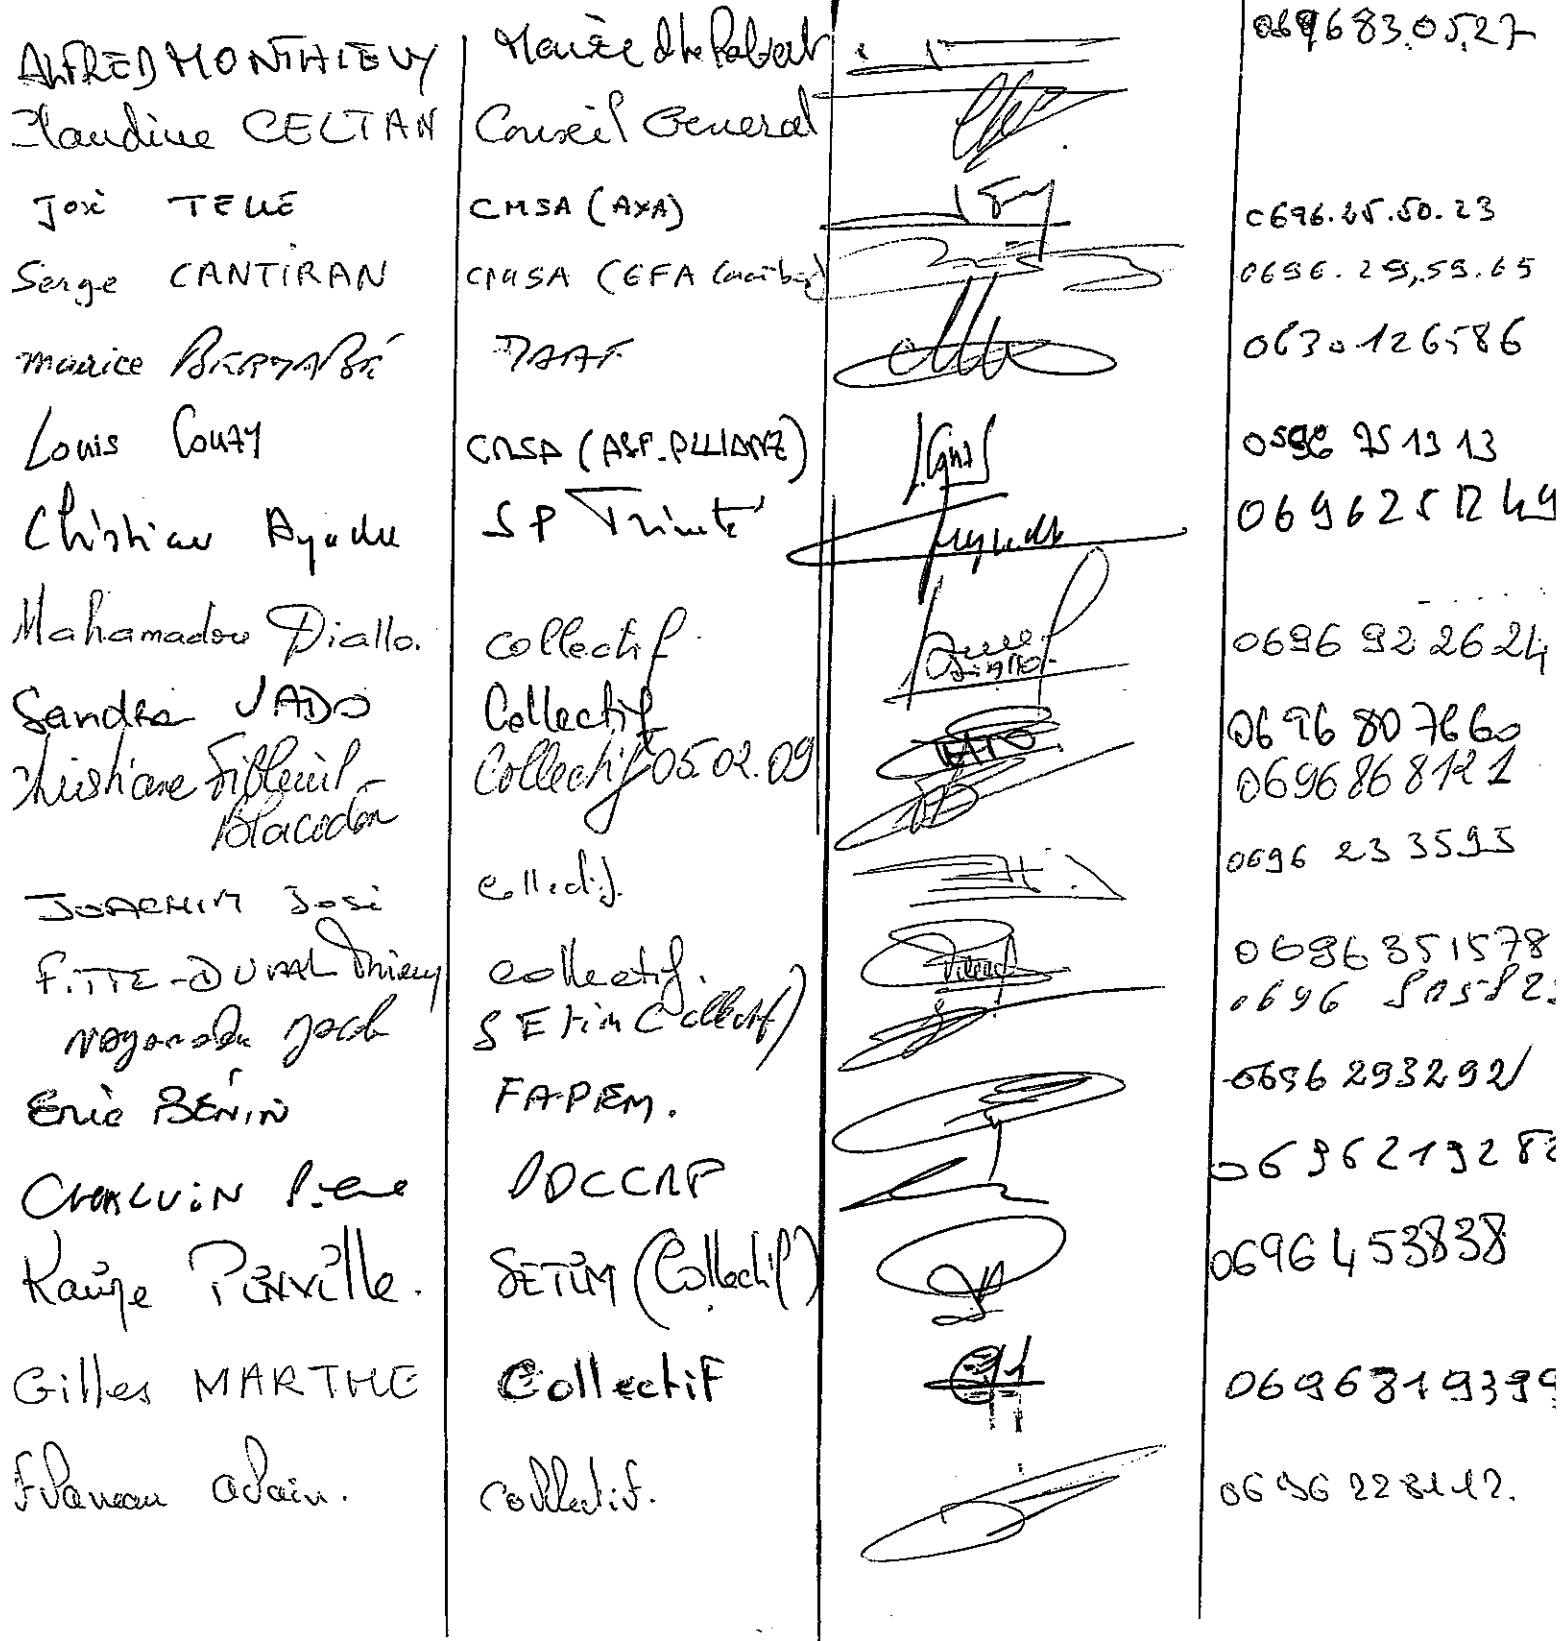 ALFRED MONTHIEUX Mairie du Robert 0696 83.05.27
Claudine CELTAN Conseil General
José TELLE CMSA (AXA) 0696.25.50.23
Serge CANTIRAN CMSA (GFA Caraïbes) 0696.29.59.65
Maurice BERNABÉ DAAF 0630126586
Louis Couzy CMSA (ASF-ALLIANZ) 0596 75 13 13
Christian Ayadu SP Trinité 0696251249
Mahamadou Diallo. collectif. 0696 92 26 24
Sandra VADO Collectif 0696 807660
Christiane Filleuil- Collectif 05.02.09 0696868121
Blacodon
JOACHIM José collectif. 0696 23 3595
FITTE-DUVAL Thierry collectif. 0696351578
(Collectif) 0696
Eric BÉNIN FAPEM. 0696 293292
CHALVIN Pierre 0696219282
PENVILLE. SETIM (Collectif) 0696453838
Gilles MARTHE Collectif 0696819399
alain. collectif. 0696 228112.